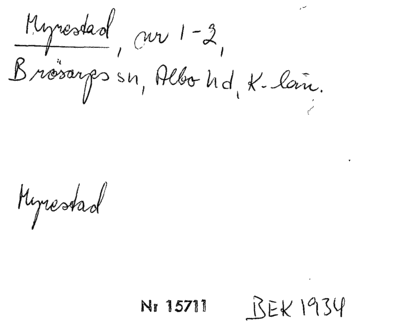 Myrestad, nr 1-2,
Brösarps sn, Albo hd, K-län.
Myrestad
Nr 15711 BEK 1934